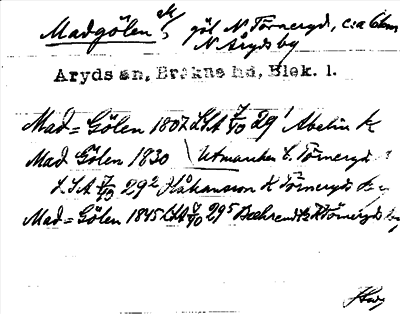 Madgölen göl N Törneryd, c:a 6km
N Åryds by
Aryds sn, Bräkne hd, Blek. l.
Mad=Gölen 1807 LSA 7/10 29' Abelin K
Mad Gölen 1830 Utmarker t. Törneryd
LSA 7/43 29² Håkansson K Törneryds by
Mad=Gölen 1845 LSA 7/10 29⁵ K Törneryds by